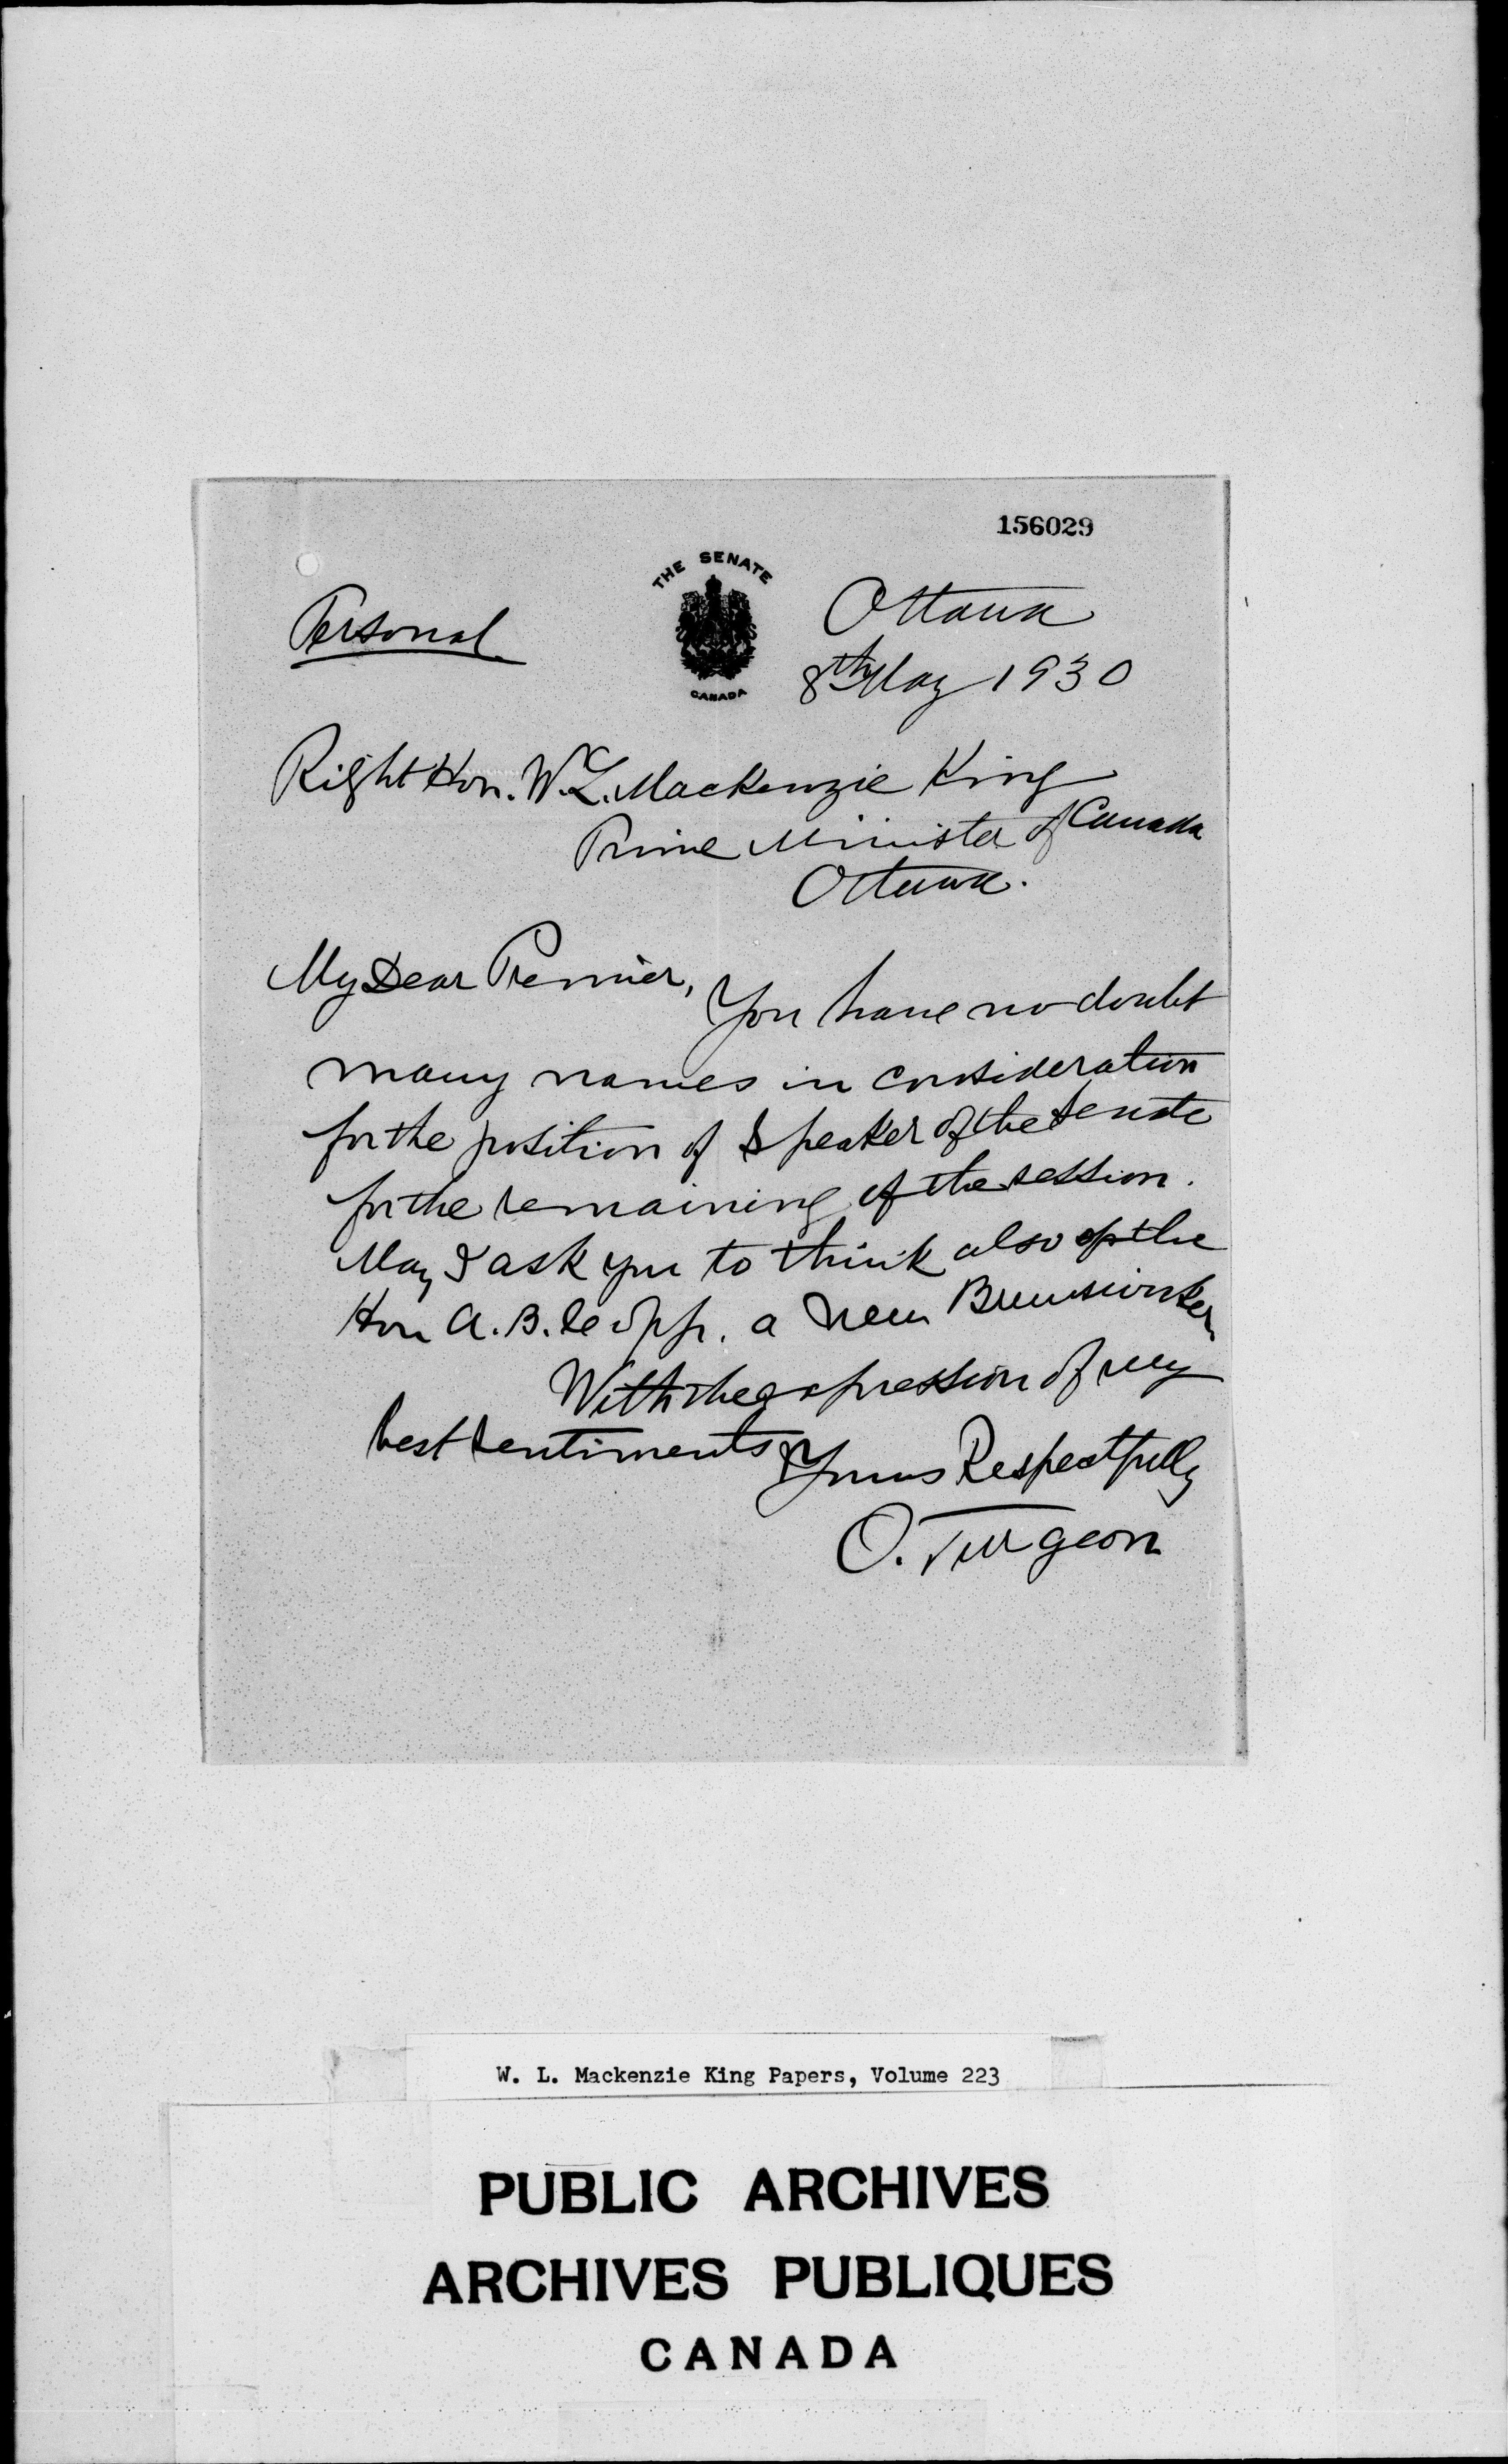 156029
THE SENATE
CANADA
Personal
Ottawa
8th May 1930
Right Hon. W. L. Mackenzie King
Prime Minister of Canada
Ottawa.
My Dear Premier,
You have no doubt
many names in consideration
for the position of Speaker of the Senate
for the remaining of the session.
May I ask you to think also of the
Hon A. B. Copp. a New Brunswicker,
With the expression of my
best sentiments
Yours Respectfully
O. Turgeon
W. L. Mackenzie King Papers, Volume 223
PUBLIC ARCHIVES
ARCHIVES PUBLIQUES
CANADA